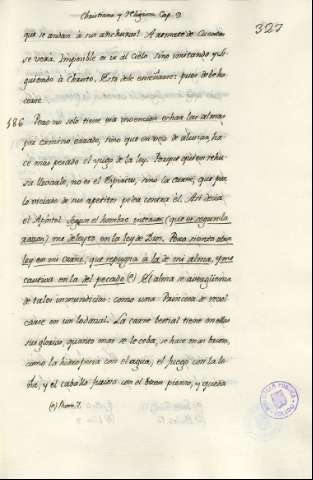 Christiano y Religioso Cap. 9
327
que se andan à sus anchuras! A remate de Cuentas
se verà. Imposible es ir al Cielo, sino imitando y si-
guiendo à Christo. Esto dele enseñarse: pues debe ha
cerse.
586 Pero no solo tiene esa invencion echar las almas
por camino errado, sino que en vez de aliviar, ha-
ce mas pesado el yugo de la ley. Porque quien rehu-
sa llevarle, no es el Espiritu, sino la carne, que por
lo viciado de sus apetitos pelea contra él. Asi decia
el Apostol. Segun el hombre interior (que es segun la
razon) me deleyto en la ley de Dios. Pero siento otra
ley en mi carne, que repugna à la de mi alma, y me
cautiva en la del pecado (e) El alma se averguenza
de tales inmundicias: como una Princesa de revol
carse en un lodazal. La carne bestial tiene en ellos
sus glorias, quanto mas se le ceba, se hace mas brava,
como la hidropesia con el agua, el fuego con la le-
ña, y el caballo furioso con el buen pienso, y queda
(e) Rom. 7.